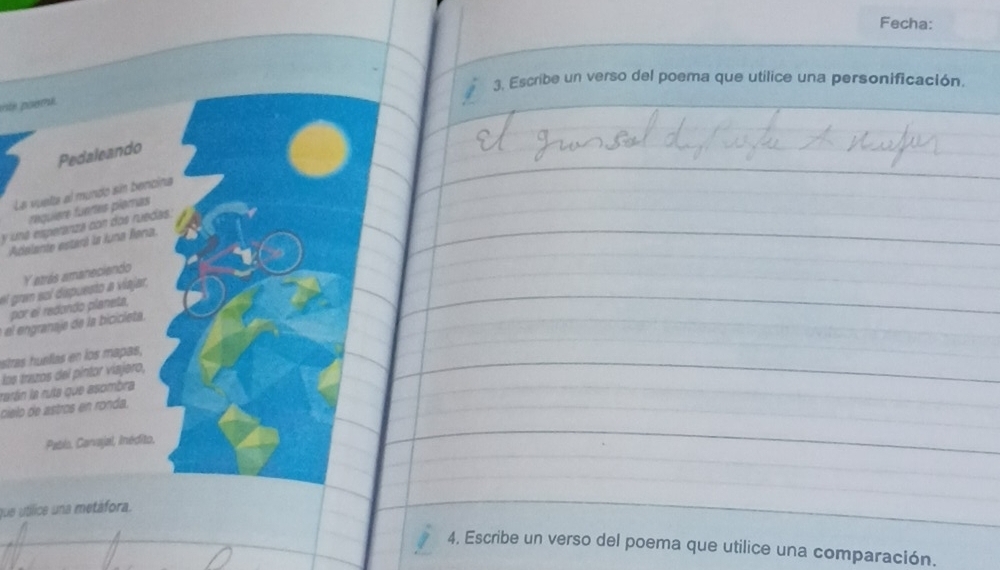 poema.
Pedaleando
La vuelta al mundo sin bencina
requiere fuertes piernas
y una esperanza con dos ruedas.
Adelante estará la luna llena.
Y atrás amaneciendo
el gran sol dispuesto a viajar,
por el redondo planeta,
el engranaje de la bicicleta.
huellas en los mapas,
los trazos del pintor viajero,
la ruta que asombra
cielo de astros en ronda.
Pablo, Carvajal, Inédito.
que utilice una metáfora.
Fecha:
3. Escribe un verso del poema que utilice una personificación.
El gran sol
4. Escribe un verso del poema que utilice una comparación.